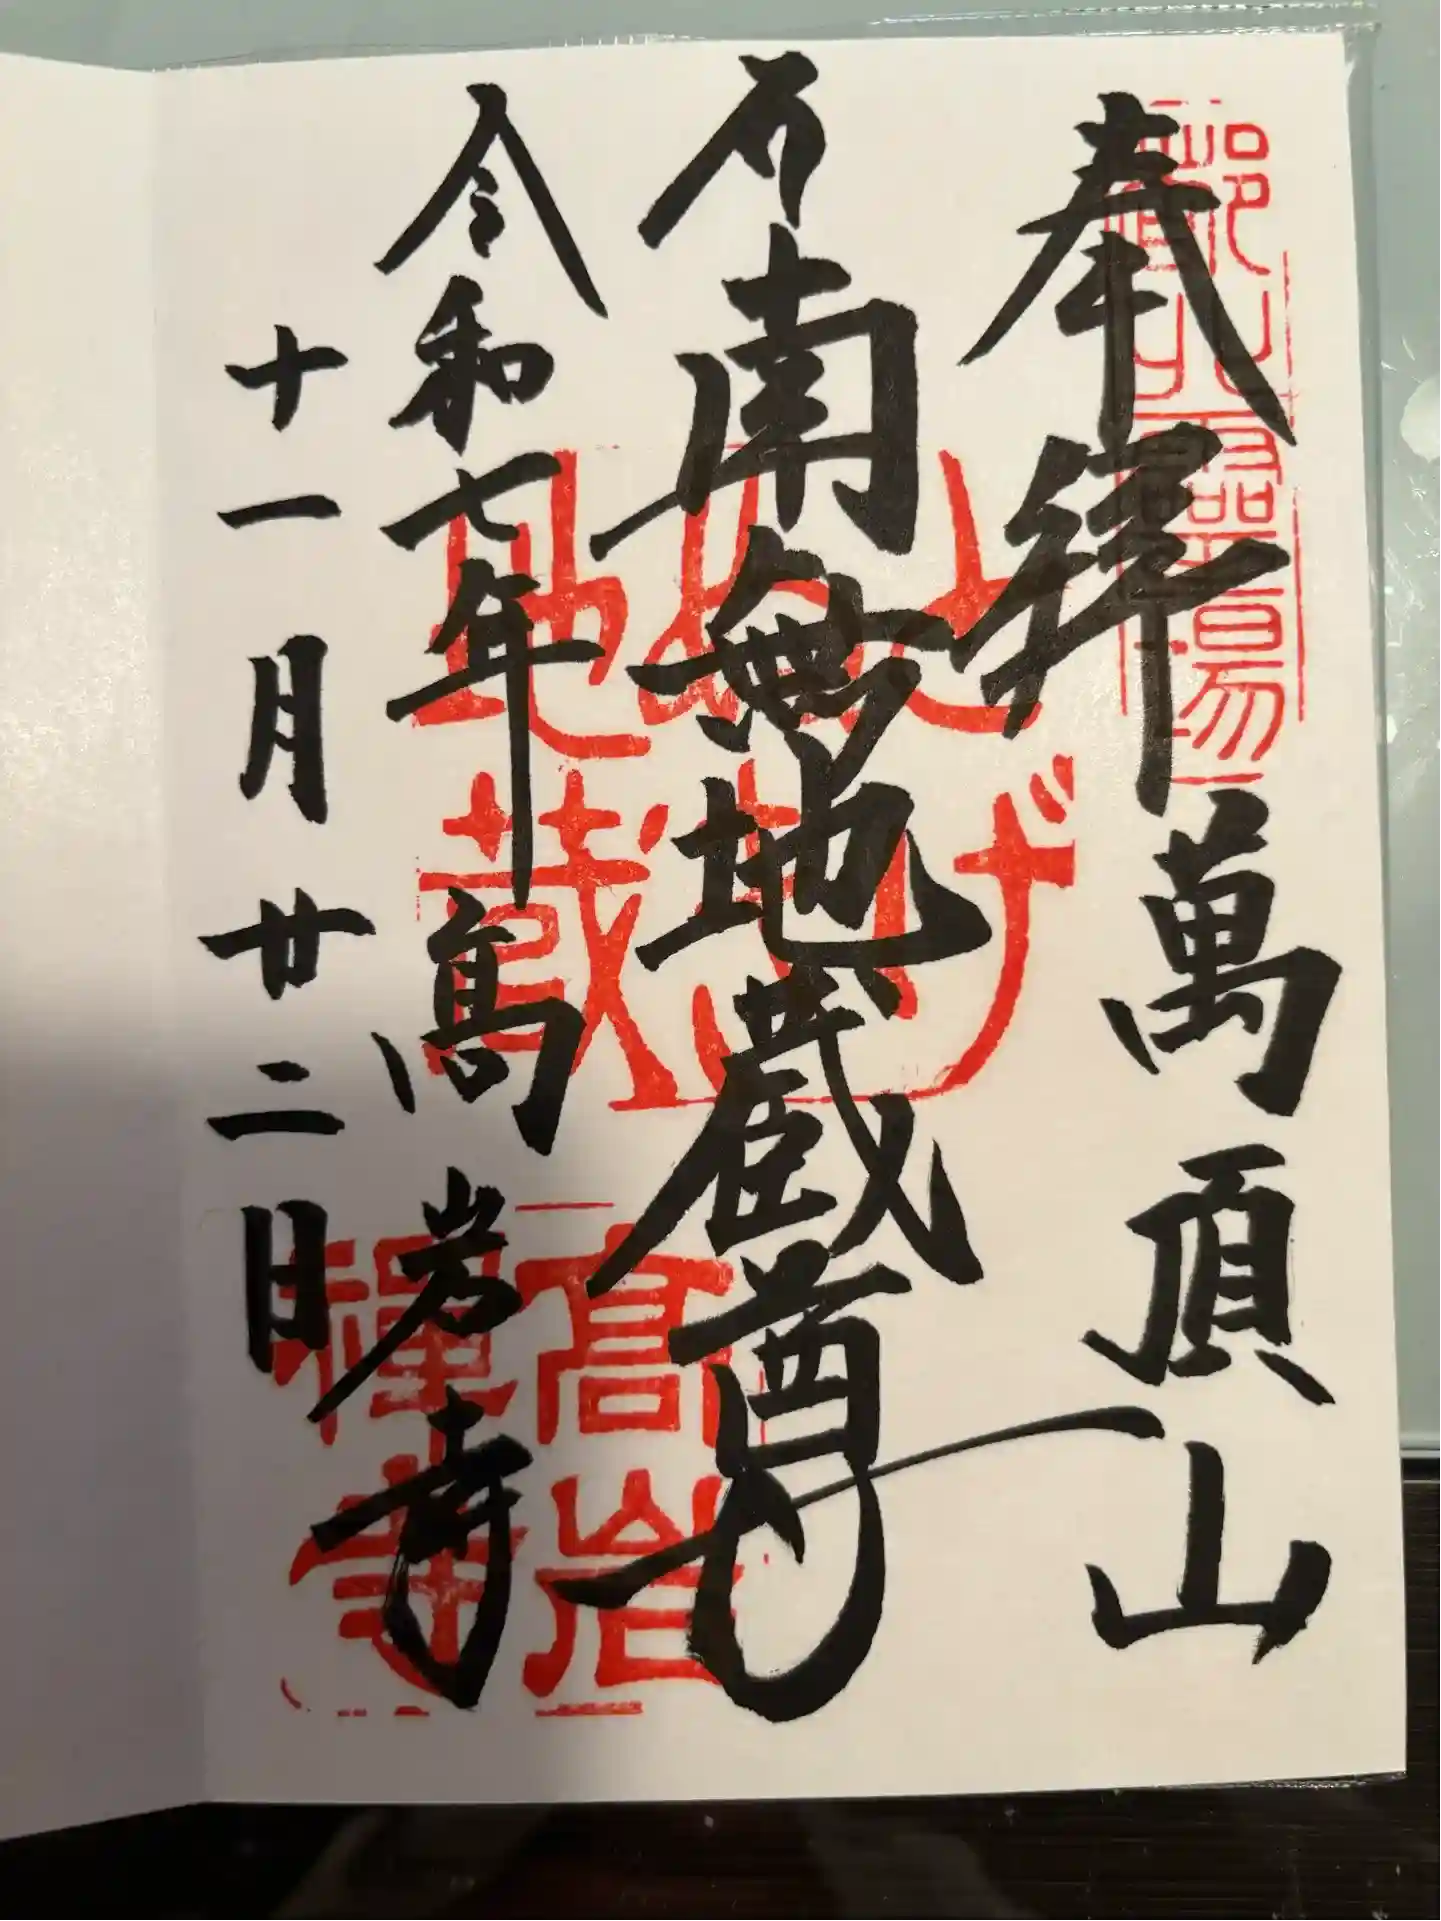 奉拝 萬頂山
南無地蔵尊
令和七年 高岩寺
十一月廿二日
靈場
とげ
ぬき
地蔵
高岩
禪寺